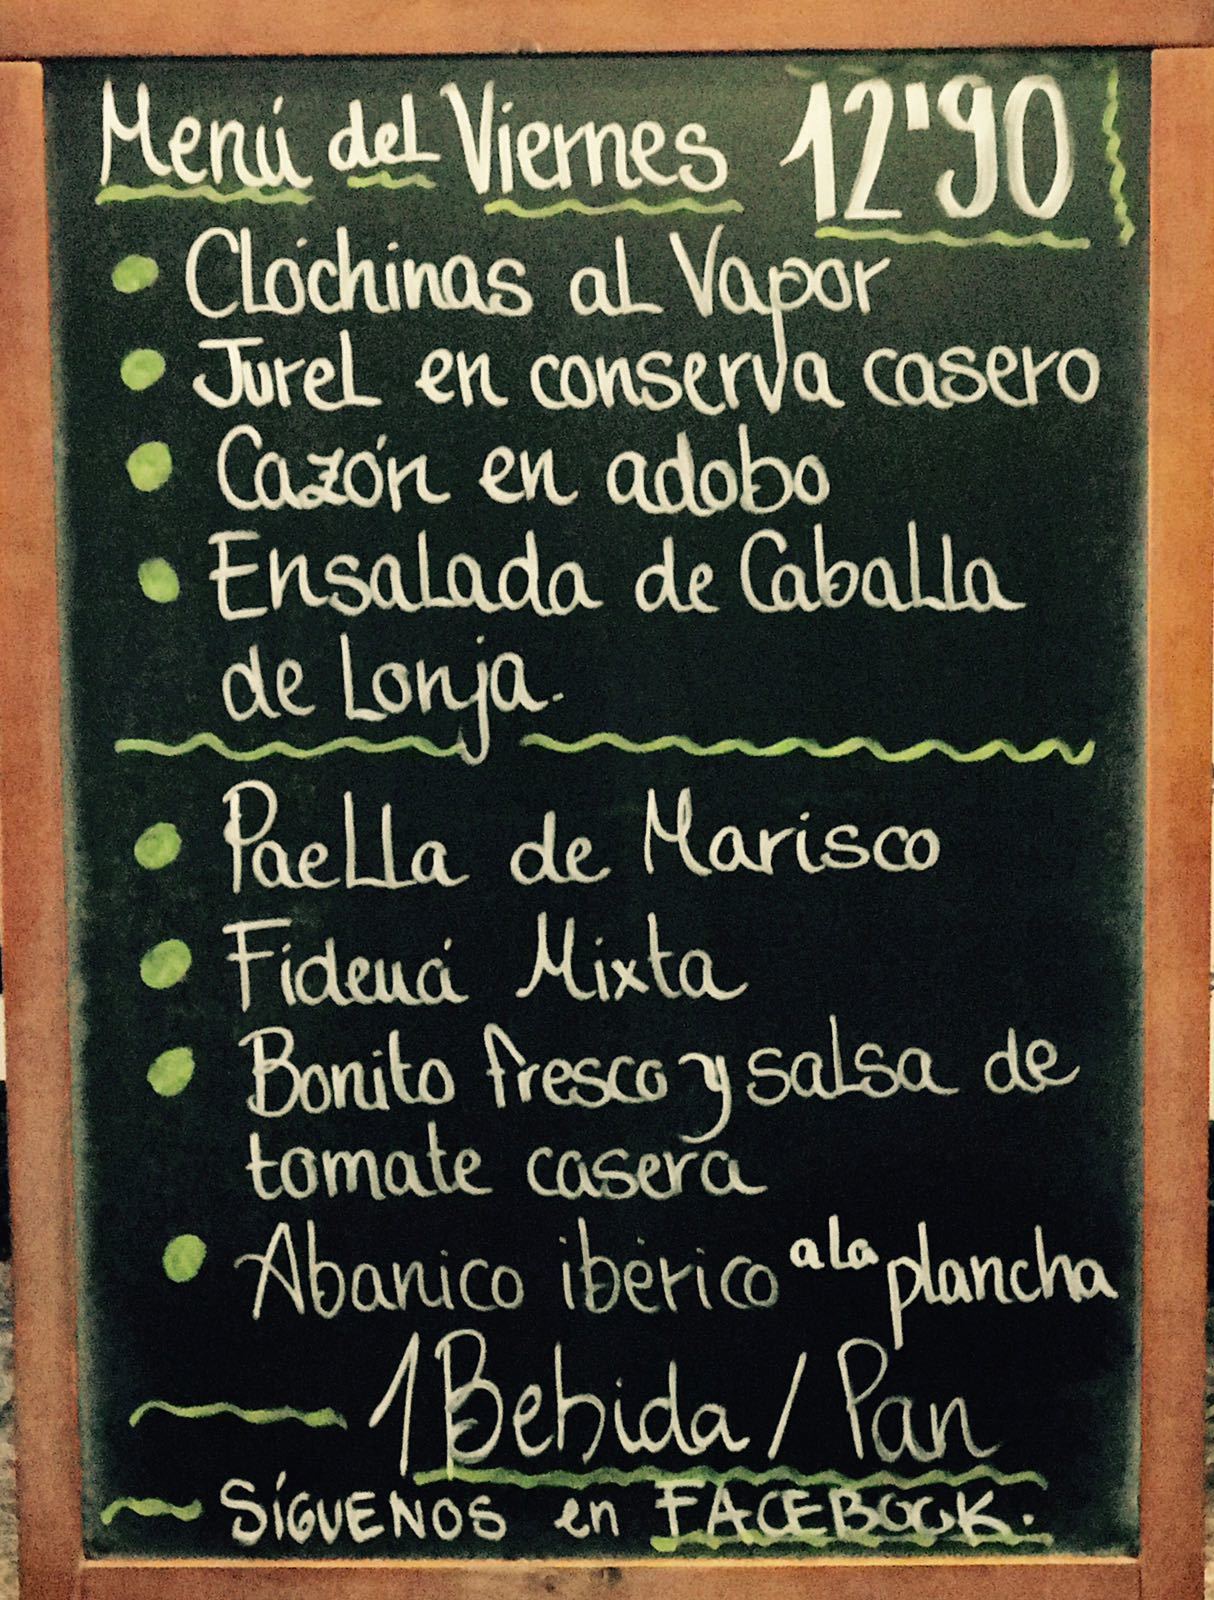 Menú del Viernes 12'90
Clóchinas al Vapor
Jurel en conserva casero
Cazón en adobo
Ensalada de Caballa
de Lonja.
Paella de Marisco
Fideuá Mixta
Bonito fresco y salsa de
tomate casera
Abanico ibérico a la plancha
1 Bebida / Pan
SÍGUENOS en FACEBOOK.